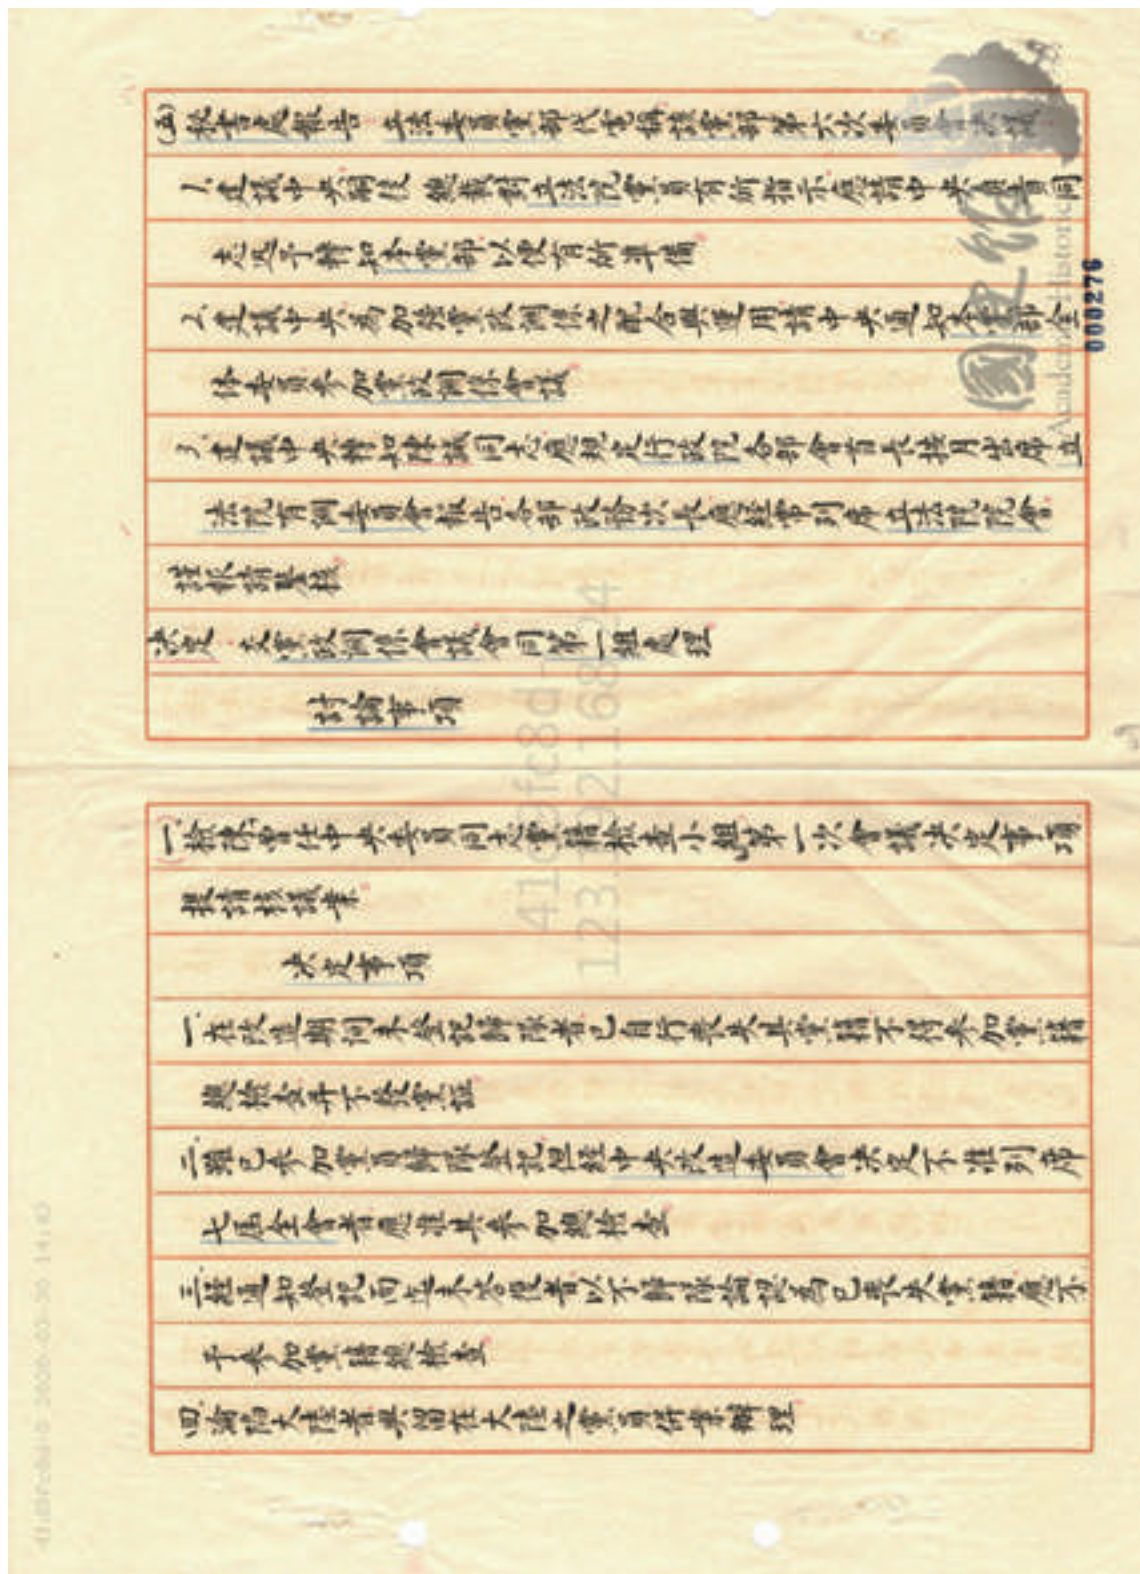 (五)秘書處報告:立法委員黨部代電稱該黨部第六次委員會決議
1.建議中央嗣後 總裁對立法院黨員有所指示應請中央負責同
志迅予轉知本黨部以便有所準備
2.建議中央為加強黨政關係之配合與運用請中央通知本黨部全
体委員參加黨政關係會議
3.建議中央轉知陳誠同志應規定行政院各部會首長按月出席立
法院有關委員會報告各部政務次長應經常列席立法院院會
謹報請鑒核
決定:交黨政關係會議會同第一組處理
討論事項
一、檢陳曾任中央委員同志黨籍檢查小組第一次會議決定事項
提請核議案
決定事項
一、在改造期間未登記歸隊者已自行喪失其黨籍不得參加黨籍
總檢查并不發黨證
二、雖已參加黨員歸隊登記但經中央改造委員會決定不准列席
七屆全會者應准其參加總檢查
三、經通知登記而迄未答復者以不歸隊論認為已喪失黨籍應不
予參加黨籍總檢查
四、淪陷大陸者與留在大陸之黨員併案辦理
國史館
Academia Historica
000276
123.192.168.24